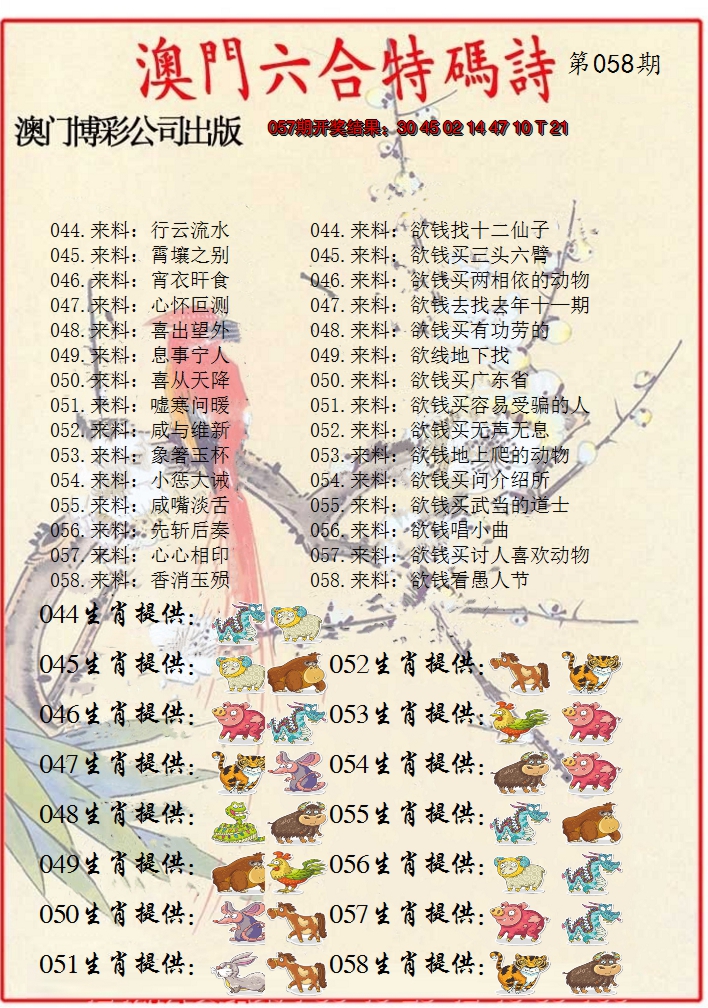 澳門六合特碼詩 第058期
澳门博彩公司出版 057期开奖结果：30 45 02 14 47 10 T 21
044.来料：行云流水 044.来料：欲钱找十二仙子
045.来料：霄壤之别 045.来料：欲钱买三头六臂
046.来料：宵衣旰食 046.来料：欲钱买两相依的动物
047.来料：心怀叵测 047.来料：欲钱去找去年十一期
048.来料：喜出望外 048.来料：欲钱买有功劳的
049.来料：息事宁人 049.来料：欲线地下找
050.来料：喜从天降 050.来料：欲钱买广东省
051.来料：嘘寒问暖 051.来料：欲钱买容易受骗的人
052.来料：咸与维新 052.来料：欲钱买无声无息
053.来料：象箸玉杯 053.来料：欲钱地上爬的动物
054.来料：小惩大诫 054.来料：欲钱买问介绍所
055.来料：咸嘴淡舌 055.来料：欲钱买武当的道士
056.来料：先斩后奏 056.来料：欲钱唱小曲
057.来料：心心相印 057.来料：欲钱买讨人喜欢动物
058.来料：香消玉殒 058.来料：欲钱看愚人节
044生肖提供：
045生肖提供： 052生肖提供：
046生肖提供： 053生肖提供：
047生肖提供： 054生肖提供：
048生肖提供： 055生肖提供：
049生肖提供： 056生肖提供：
050生肖提供： 057生肖提供：
051生肖提供： 058生肖提供：